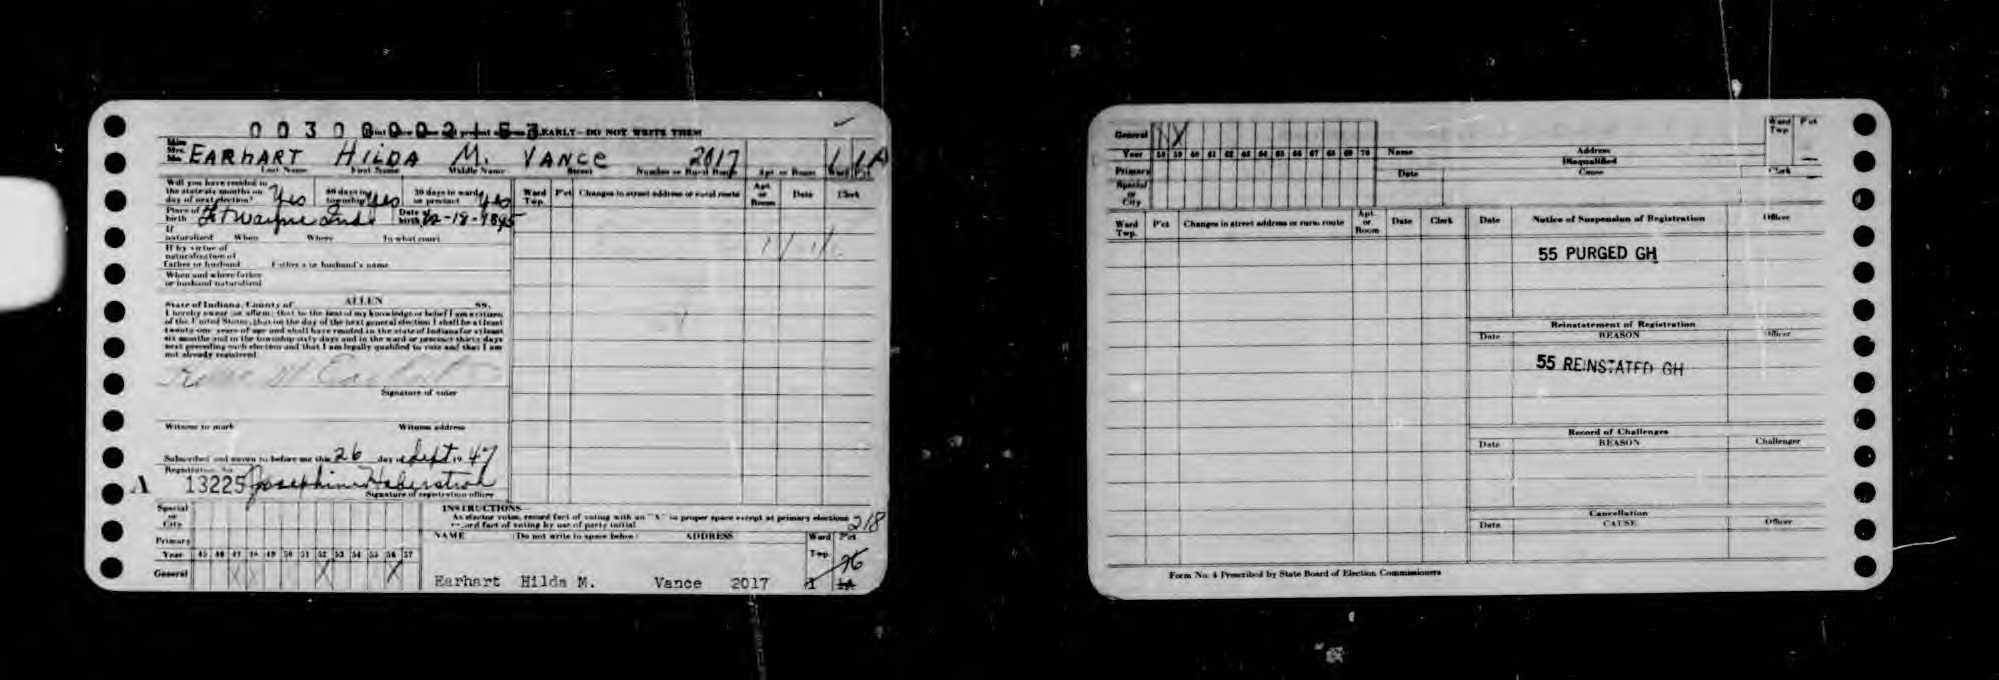 0 0 3 0 0 0 0 2 1 5 3 EARLY—DO NOT WRITE THEM
Miss
Mrs.
Mr. EARHART HILDA M. VANCE 2017 1 1A
Last Name First Name Middle Name Street Number or Rural Route Apt. or Room Ward Pct
Will you have resided in
the state six months on
day of next election? Yes 60 days in
township Yes 30 days in ward
or precinct Yes
Place of
birth Ft Wayne Ind. Date of
birth 12-18-1895
If
naturalized When Where In what court
If by virtue of
naturalization of
father or husband Father's or husband's name
When and where father
or husband naturalized
State of Indiana, County of ALLEN SS.
I hereby swear (or affirm) that to the best of my knowledge or belief I am a citizen
of the United States, that on the day of the next general election I shall be at least
twenty-one years of age and shall have resided in the state of Indiana for at least
six months and in the township sixty days and in the ward or precinct thirty days
next preceding such election and that I am legally qualified to vote and that I am
not already registered.
Signature of voter
Witness to mark Witness address
Subscribed and sworn to before me this 26 day of Sept 19 47
Registration No.
A 13225 Josephine Haberstroh
Signature of registration officer
Ward
Twp. P'ct Changes in street address or rural route Apt.
or
Room Date Clerk
Special
or
City
Primary
Year 45 46 47 48 49 50 51 52 53 54 55 56 57
General X X X X
INSTRUCTIONS—
As elector votes, record fact of voting with an "X" in proper space except at primary elections
record fact of voting by use of party initial
218
NAME (Do not write in space below) ADDRESS Ward Pct
Twp. 76
Earhart Hilda M. Vance 2017 1 1A
General X X
Year 58 59 60 61 62 63 64 65 66 67 68 69 70 Name Address
Ward
Twp P'ct
Disqualified
Primary Date Cause Clerk
Special
or
City
Ward
Twp. P'ct Changes in street address or rural route Apt.
or
Room Date Clerk
Date Notice of Suspension of Registration Officer
55 PURGED GH
Reinstatement of Registration
Date REASON Officer
55 REINSTATED GH
Record of Challenges
Date REASON Challenger
Cancellation
Date CAUSE Officer
Form No. 4 Prescribed by State Board of Election Commissioners